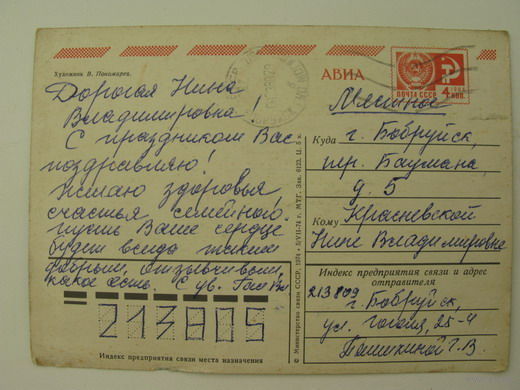 Художник В. Пономарев.
Дорогая Нина
Владимировна!
С праздником Вас
поздравляю!
Желаю здоровья,
счастья семейного.
пусть Ваше сердце
будет всегда таким
добрым, отзывчивым,
какое есть. С ув.
213805
Индекс предприятия связи места назначения
© Министерство связи СССР, 1974 г. 5/VII-74 г. МТГ. Зак. 6123. Ц. 5 к.
АВИА
ПОЧТА СССР
4 КОП.
Местное
Куда г. Бобруйск,
пр. Баумана,
д. 5
Кому Красневской
Нине Владимировне
Индекс предприятия связи и адрес
отправителя
213809
г. Бобруйск,
ул. Гоголя, 25-4
Пашкиной Г. В.